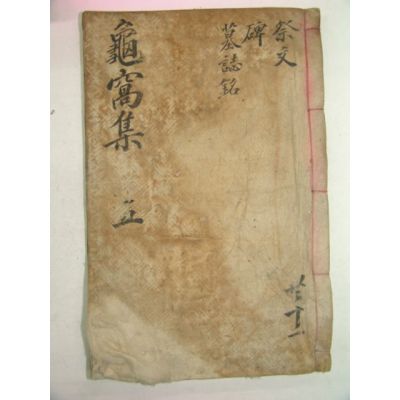 祭文
碑
墓誌銘
龜窩集 五